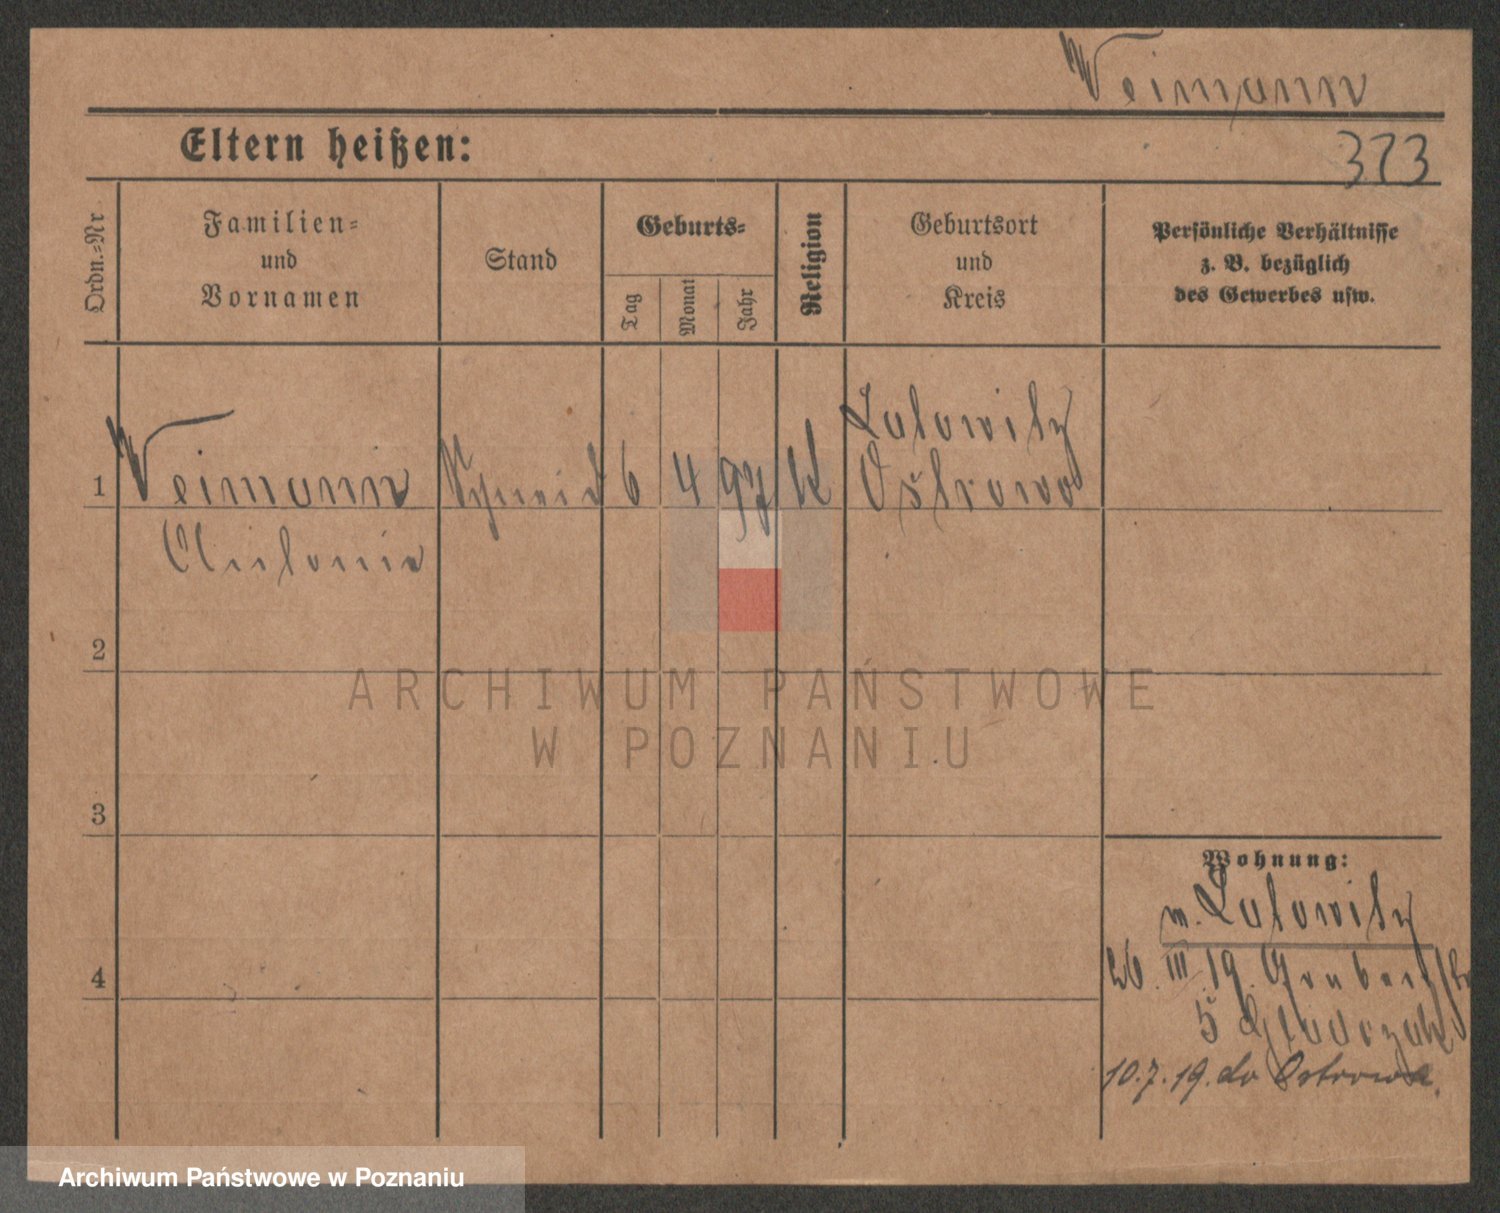 Weimann
Eltern heißen:
373
Ordn.=Nr
Familien=
und
Vornamen
Stand
Geburts=
Tag
Monat
Jahr
Religion
Geburtsort
und
Kreis
Persönliche Verhältnisse
z. B. bezüglich
des Gewerbes usw.
1
Weimann
Schneid
6
4
97
K
Latowitz
Ostrowo
Antonie
2
ARCHIWUM PAŃSTWOWE
W POZNANIU
3
4
Wohnung:
Latowitz
26. III. 19.
5
10.7.19. do Ostrowa.
Archiwum Państwowe w Poznaniu